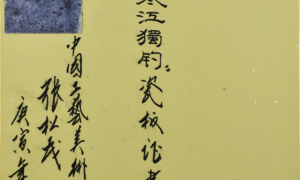 寒江獨釣瓷板证書
中國工藝美術
張松茂
庚寅年